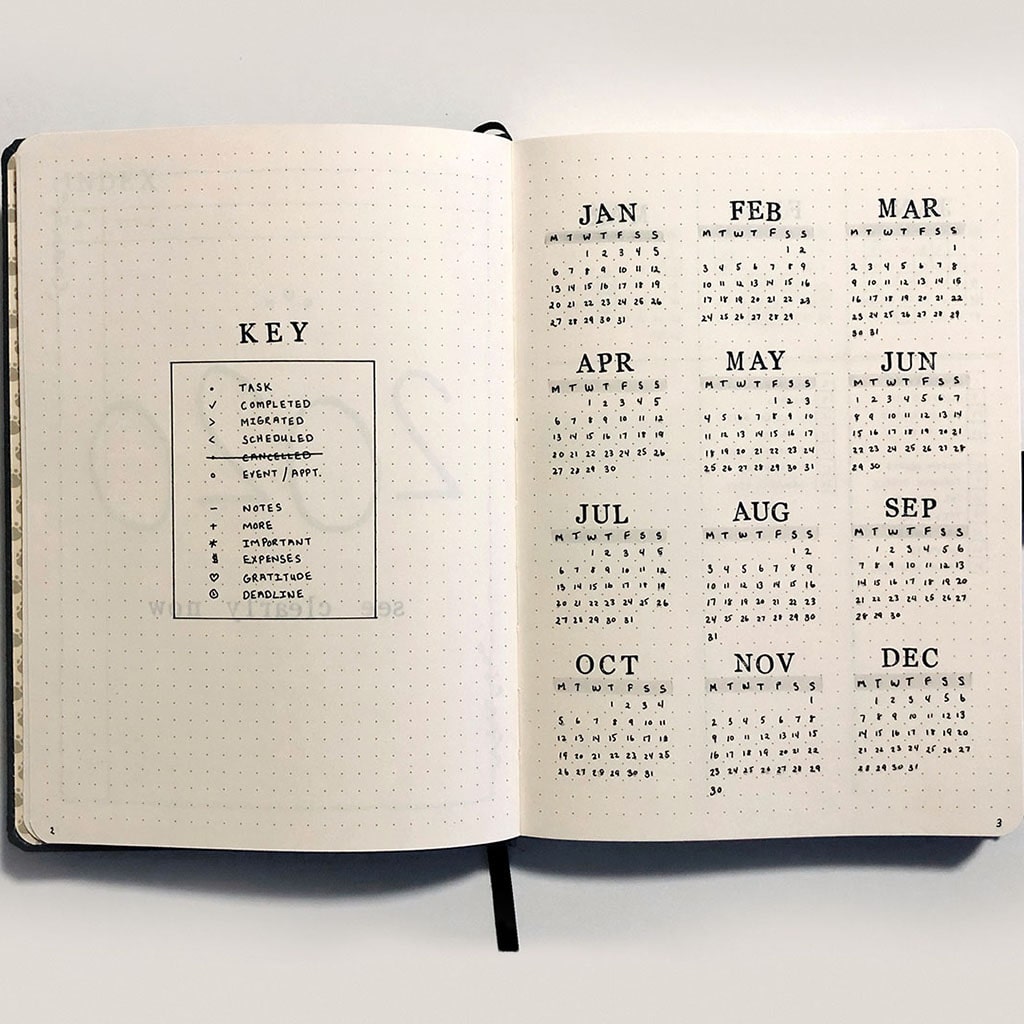 INDEX
KEY
• TASK
✓ COMPLETED
> MIGRATED
< SCHEDULED
• CANCELLED
o EVENT / APPT.
– NOTES
+ MORE
* IMPORTANT
$ EXPENSES
♡ GRATITUDE
DEADLINE
2
JAN
M T W T F S S
1 2 3 4 5
6 7 8 9 10 11 12
13 14 15 16 17 18 19
20 21 22 23 24 25 26
27 28 29 30 31
FEB
M T W T F S S
1 2
3 4 5 6 7 8 9
10 11 12 13 14 15 16
17 18 19 20 21 22 23
24 25 26 27 28 29
MAR
M T W T F S S
1
2 3 4 5 6 7 8
9 10 11 12 13 14 15
16 17 18 19 20 21 22
23 24 25 26 27 28 29
30 31
APR
M T W T F S S
1 2 3 4 5
6 7 8 9 10 11 12
13 14 15 16 17 18 19
20 21 22 23 24 25 26
27 28 29 30
MAY
M T W T F S S
1 2 3
4 5 6 7 8 9 10
11 12 13 14 15 16 17
18 19 20 21 22 23 24
25 26 27 28 29 30 31
JUN
M T W T F S S
1 2 3 4 5 6 7
8 9 10 11 12 13 14
15 16 17 18 19 20 21
22 23 24 25 26 27 28
29 30
JUL
M T W T F S S
1 2 3 4 5
6 7 8 9 10 11 12
13 14 15 16 17 18 19
20 21 22 23 24 25 26
27 28 29 30 31
AUG
M T W T F S S
1 2
3 4 5 6 7 8 9
10 11 12 13 14 15 16
17 18 19 20 21 22 23
24 25 26 27 28 29 30
31
SEP
M T W T F S S
1 2 3 4 5 6
7 8 9 10 11 12 13
14 15 16 17 18 19 20
21 22 23 24 25 26 27
28 29 30
OCT
M T W T F S S
1 2 3 4
5 6 7 8 9 10 11
12 13 14 15 16 17 18
19 20 21 22 23 24 25
26 27 28 29 30 31
NOV
M T W T F S S
1
2 3 4 5 6 7 8
9 10 11 12 13 14 15
16 17 18 19 20 21 22
23 24 25 26 27 28 29
30
DEC
M T W T F S S
1 2 3 4 5 6
7 8 9 10 11 12 13
14 15 16 17 18 19 20
21 22 23 24 25 26 27
28 29 30 31
3